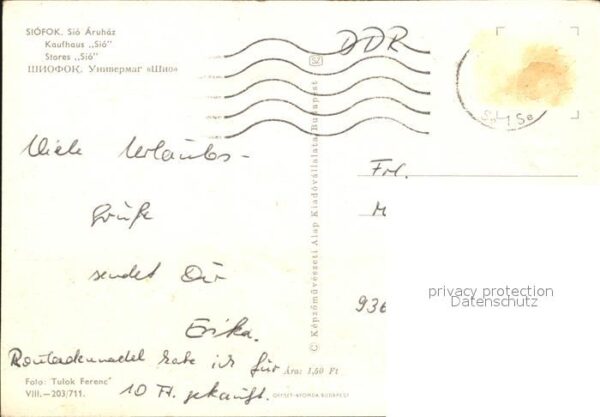 SIÓFOK. Sió Áruház
Kaufhaus „Sió"
Stores „Sió"
ШИОФОК. Универмаг «Шио»
DDR
Viele Urlaubs-
grüße
sendet Dir
Erika.
habe ich für
10 Ft. gekauft.
Frl.
M
936
privacy protection
Datenschutz
© Képzőművészeti Alap Kiadóvállalata, Budapest
Ára: 1,50 Ft
Foto: Tulok Ferenc
VIII.—203/711.
OFFSET-NYOMDA BUDAPEST